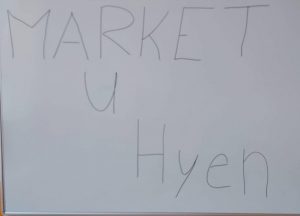 MARKET
u
Hyen